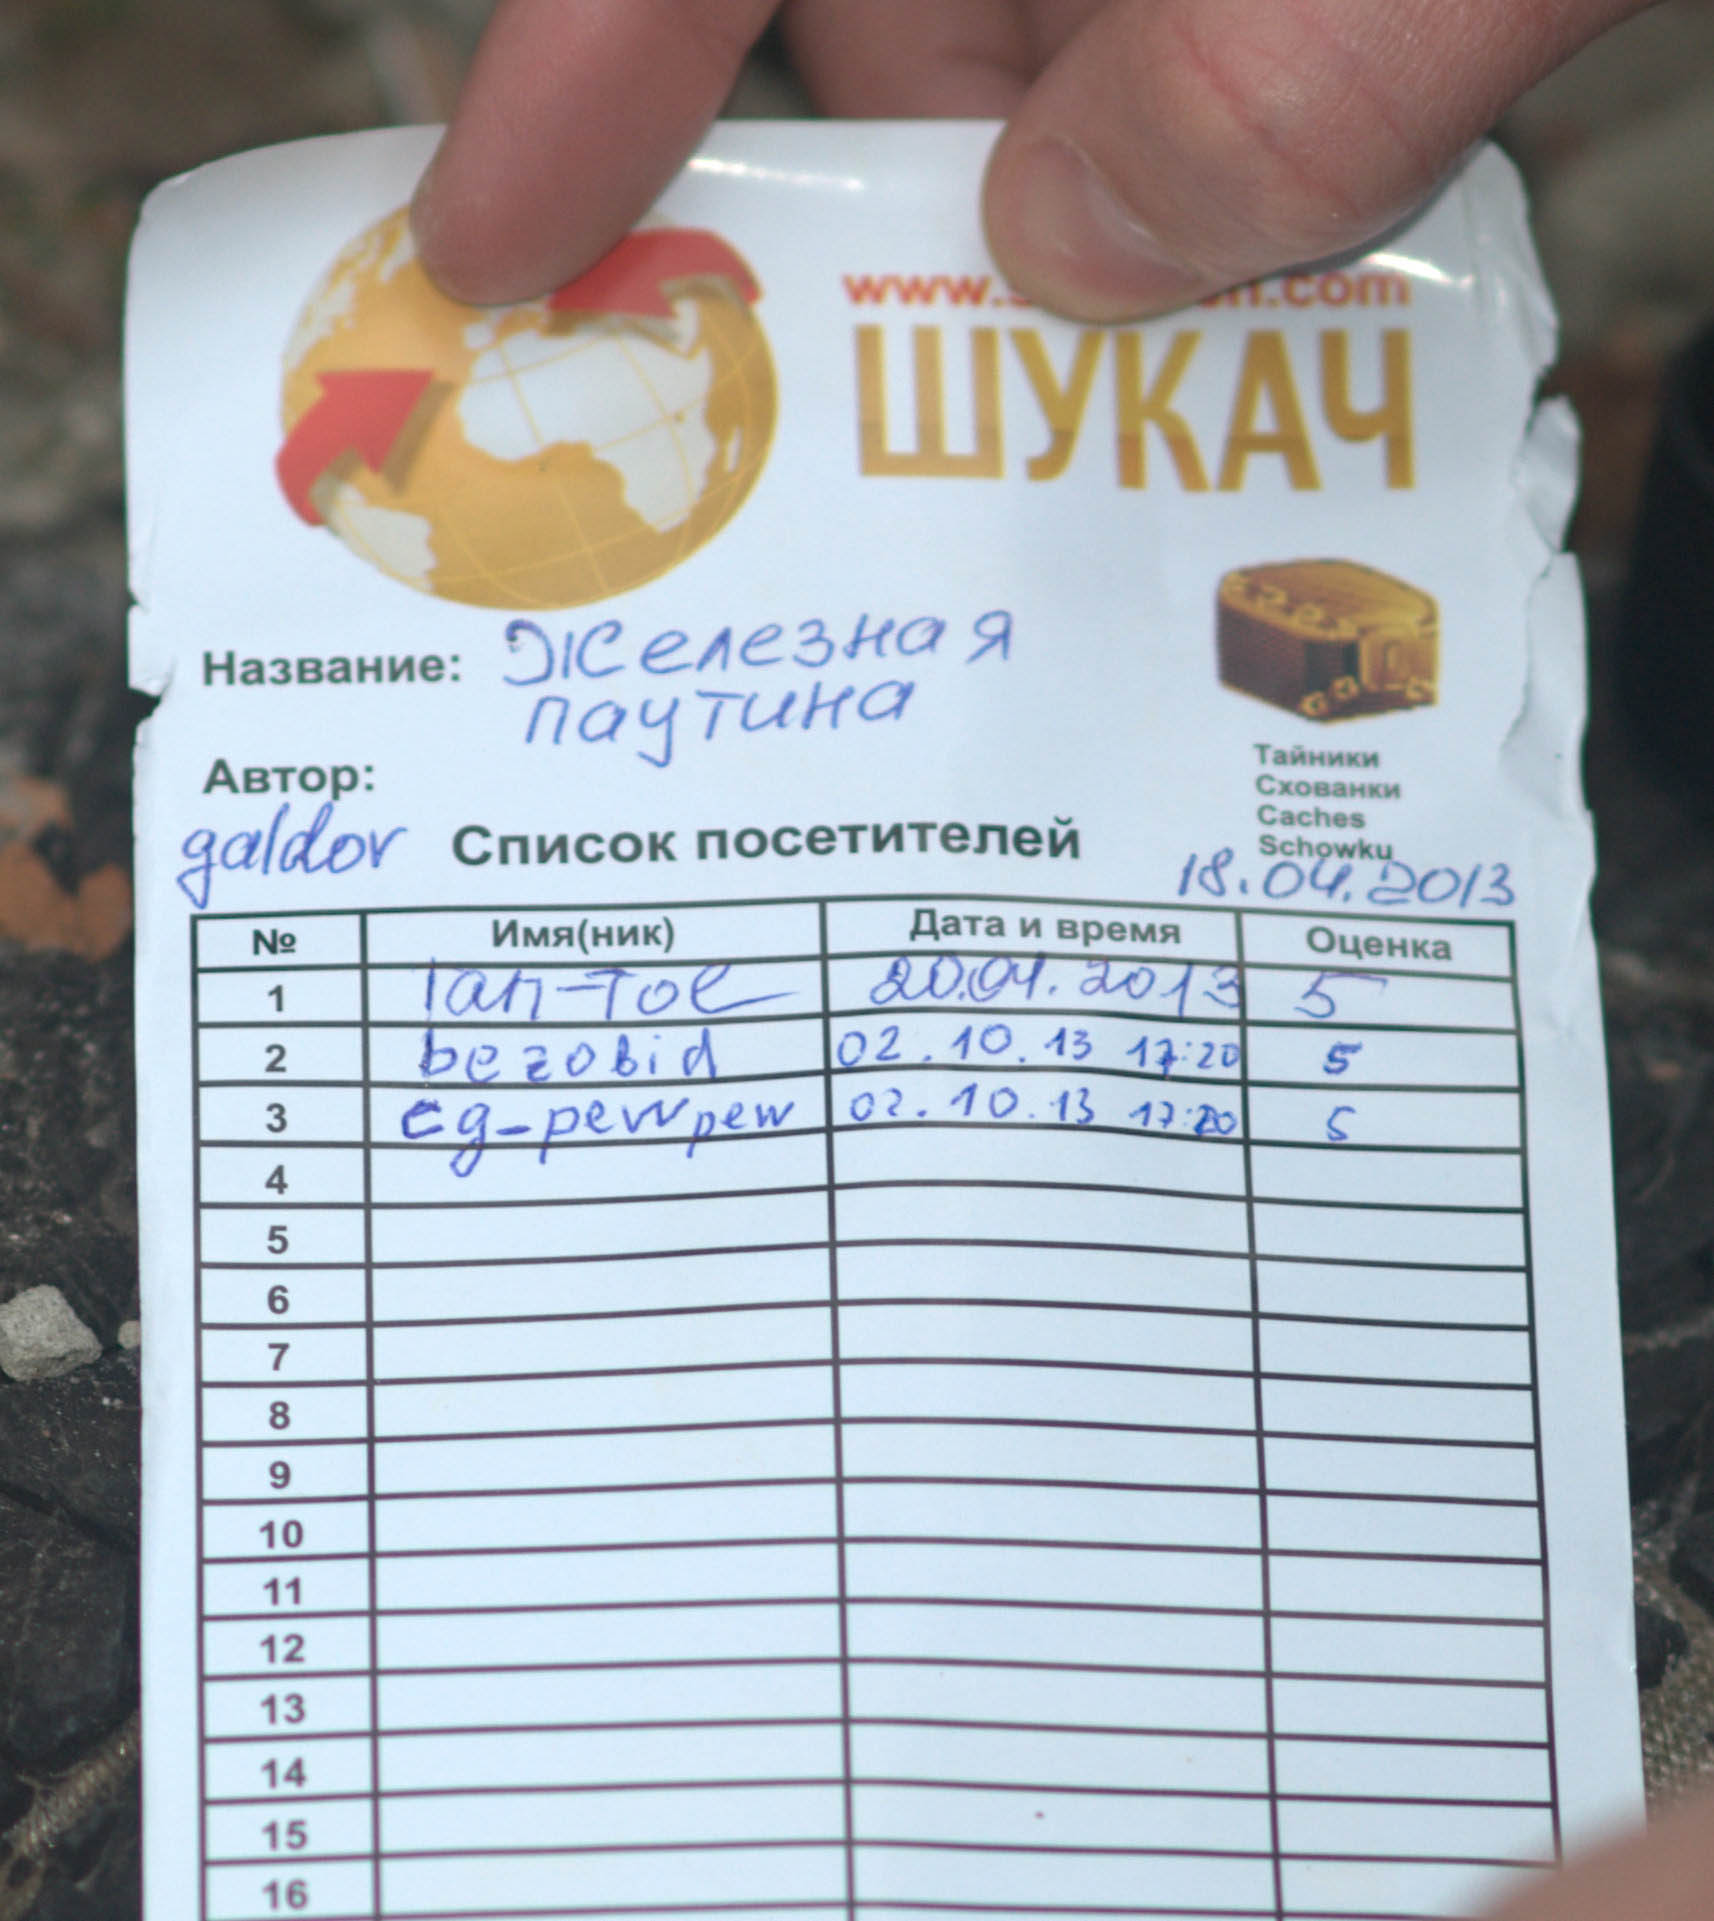 ШУКАЧ
Название: Железная
паутина
Автор:
galdor
Тайники
Схованки
Caches
Schowku
Список посетителей
18.04.2013
№ Имя(ник) Дата и время Оценка
1 20.04.2013 5
2 bezobid 02.10.13 17:20 5
3 eg-pewpew 02.10.13 17:20 5
4
5
6
7
8
9
10
11
12
13
14
15
16